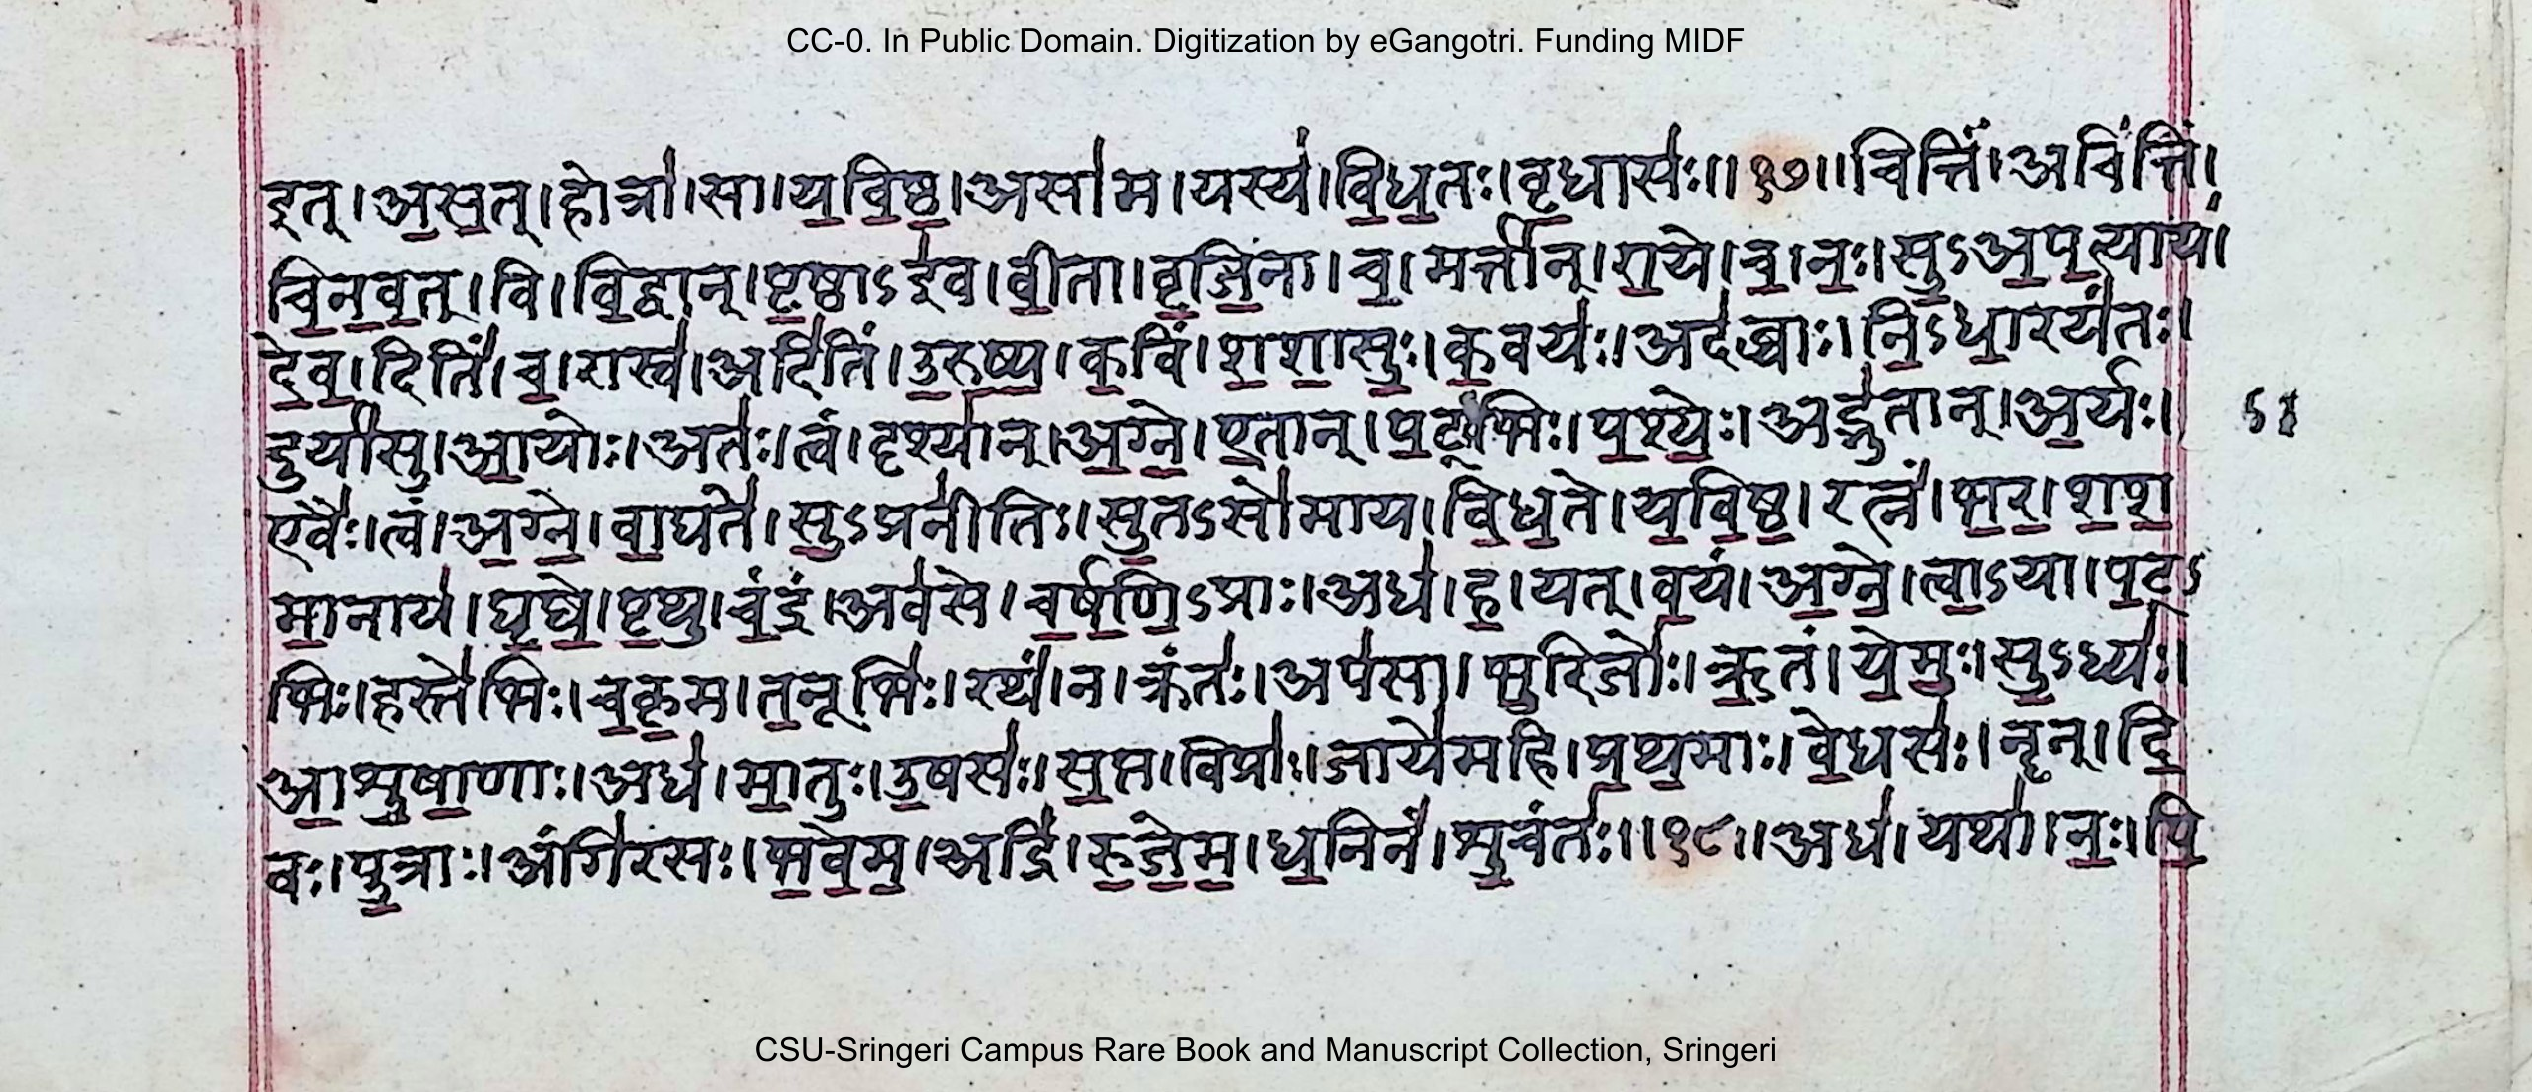 CC-0. In Public Domain. Digitization by eGangotri. Funding MIDF
इत्।अ॒स॒त्।होत्रा॑।सा।य॒वि॒ष्ठ॒।असा॑म।यस्य॑।वि॒ध॒तः।वृ॒धासः॑॥१७॥चित्तिं॑।अचि॑त्तिं।
चि॒न॒व॒त्।वि।वि॒द्वान्।पृ॒ष्ठाऽइ॑व।वी॒ता।वृ॒जि॒ना।च॒।मर्त्ता॑न्।रा॒ये।च॒।नः॒।सु॒ऽअ॒प॒त्याय॑।
दे॒व॒।दितिं॑।च॒।रास्व॑।अदि॑तिं।उ॒रु॒ष्य॒।क॒विं।श॒शा॒सुः॒।क॒वयः॑।अद॑ब्धाः।नि॒ऽधा॒रय॑तः।
दुर्या॑सु।आ॒योः।अतः॑।त्वं।दृश्या॑न्।अ॒ग्ने॒।ए॒तान्।प॒ट्ऽभिः।प॒श्ये॒ः।अद्भु॑तान्।अ॒र्यः।
एवैः॑।त्वं।अ॒ग्ने॒।वा॒घते॑।सु॒ऽप्रनी॑तिः।सु॒तऽसो॑माय।वि॒ध॒ते।य॒वि॒ष्ठ॒।रत्नं॑।भ॒र॒।श॒श॒
मा॒नाय॑।घृ॒ष्वे॒।पृ॒थु।चं॒द्रं।अव॑से।च॒र्ष॒णि॒ऽप्राः।अध॑।ह॒।यत्।व॒यं।अ॒ग्ने॒।त्वा॒ऽया।प॒ट्ऽ
भिः।हस्ते॑भिः।च॒कृ॒म।त॒नूभिः॑।रथं॑।न।क्रंतः॑।अप॑सा।भु॒रिजोः॑।ऋ॒तं।ये॒मुः॒।सु॒ऽध्यः॑।
आ॒शु॒षा॒णाः।अध॑।मा॒तुः।उ॒षसः॑।स॒प्त।विप्राः॑।जाये॑महि।प्र॒थ॒माः।वे॒धसः॑।नॄन्।दि॒
वः।पु॒त्राः।अंगि॑रसः।भ॒वे॒म॒।अद्रिं॑।रु॒जे॒म॒।ध॒निनं॑।शु॒चंतः॑॥१८॥अध॑।यथा॑।नः॒।पि॒
CSU-Sringeri Campus Rare Book and Manuscript Collection, Sringeri